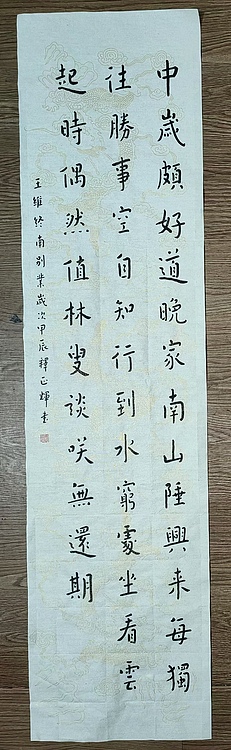 中歲頗好道晚家南山陲興来每獨
往勝事空自知行到水窮處坐看雲
起時偶然值林叟談咲無還期
王維終南別業歲次甲辰釋正輝書